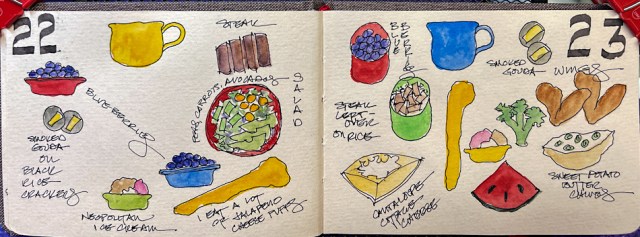 22
STEAK
BLUEBERRIES
PEAR, CARROTS, AVOCADO
SALAD
SMOKED
GOUDA
ON
BLACK
RICE
CRACKERS
NEOPOLITAN
ICE CREAM
I EAT A LOT
OF JALAPENO
CHEESE PUFFS
BLUE
BERRIES
23
SMOKED
GOUDA
WINGS
STEAK
LEFT-
OVER
ON RICE
CANTALOPE
COTTAGE
CHEESE
SWEET POTATO
BUTTER
CHIVES